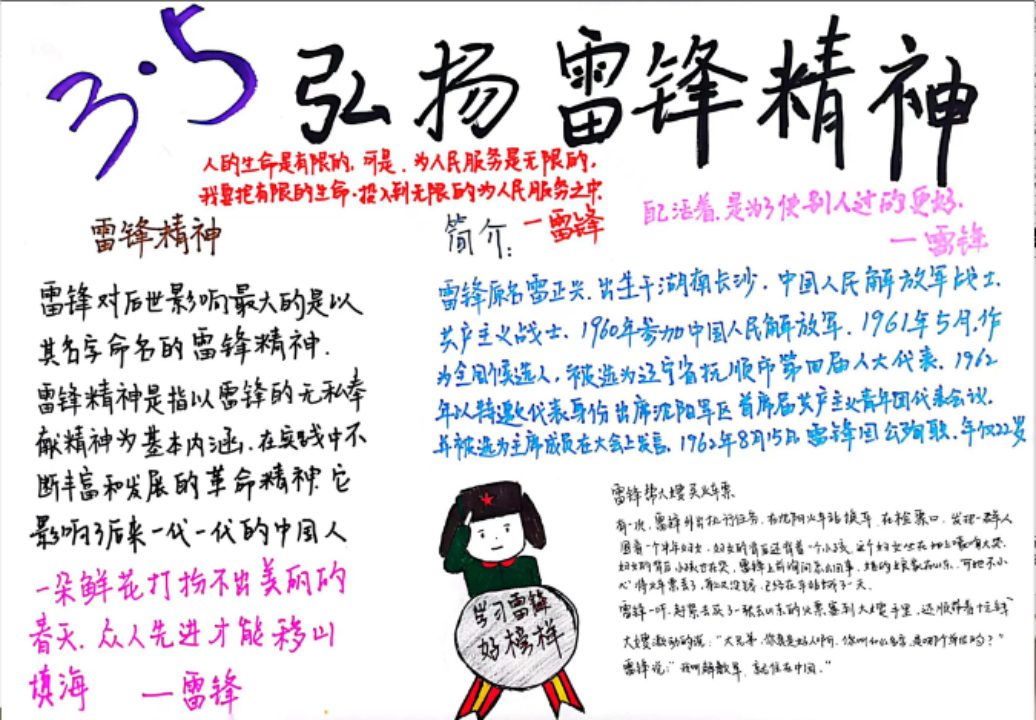 3·5 弘扬雷锋精神
人的生命是有限的,可是,为人民服务是无限的,
我要把有限的生命,投入到无限的为人民服务之中
—雷锋
活着,是为了使别人过的更好.
—雷锋
雷锋精神
雷锋对后世影响最大的是以
其名字命名的雷锋精神.
雷锋精神是指以雷锋的无私奉
献精神为基本内涵,在实践中不
断丰富和发展的革命精神,它
影响了后来一代一代的中国人
一朵鲜花打扮不出美丽的
春天,众人先进才能移山
填海 —雷锋
简介:
雷锋原名雷正兴,出生于湖南长沙,中国人民解放军战士,
共产主义战士,1960年参加中国人民解放军,1961年5月,作
为全国候选人,被选为辽宁省抚顺市第四届人大代表.1962
年以特邀代表身份出席沈阳军区首席届共产主义青年团代表会议,
并被选为主席成员在大会上发言.1962年8月15日雷锋因公殉职,年仅22岁
学习雷锋
好榜样
雷锋帮大嫂买火车票
有一次,雷锋外出执行任务,在沈阳火车站换车,在检票口,发现一群人
围着一个中年妇女,妇女的背后还背着一个小孩,这个妇女坐在地上嚎啕大哭,
妇女的背后小孩也在哭,雷锋上前询问怎么回事,她的娘家在山东,可她不小
心将火车票丢了,
雷锋一听,赶紧去买了一张去山东的火票塞到大嫂手里,还顺带着十元钱
大嫂激动的说:"大兄弟,你真是好人啊,你叫什么名字,是哪个单位的?"
雷锋说:"我叫解放军,就住在中国."